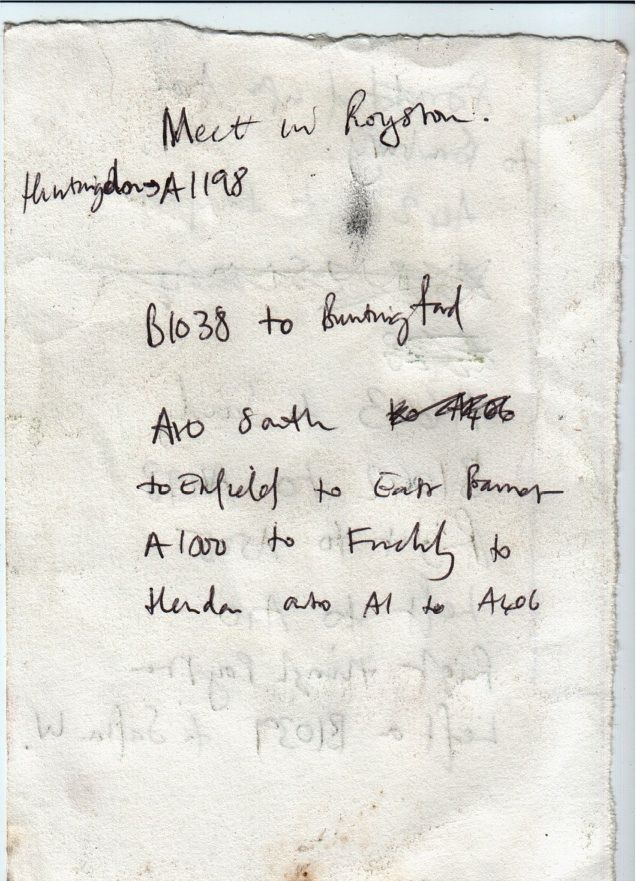 Meet in Royston.
Huntingdon → A1198
B1038 to Buntingford
A10 South to A406
to Enfield to East Barnet
A1000 to Finchley to
Hendon onto A1 to A406